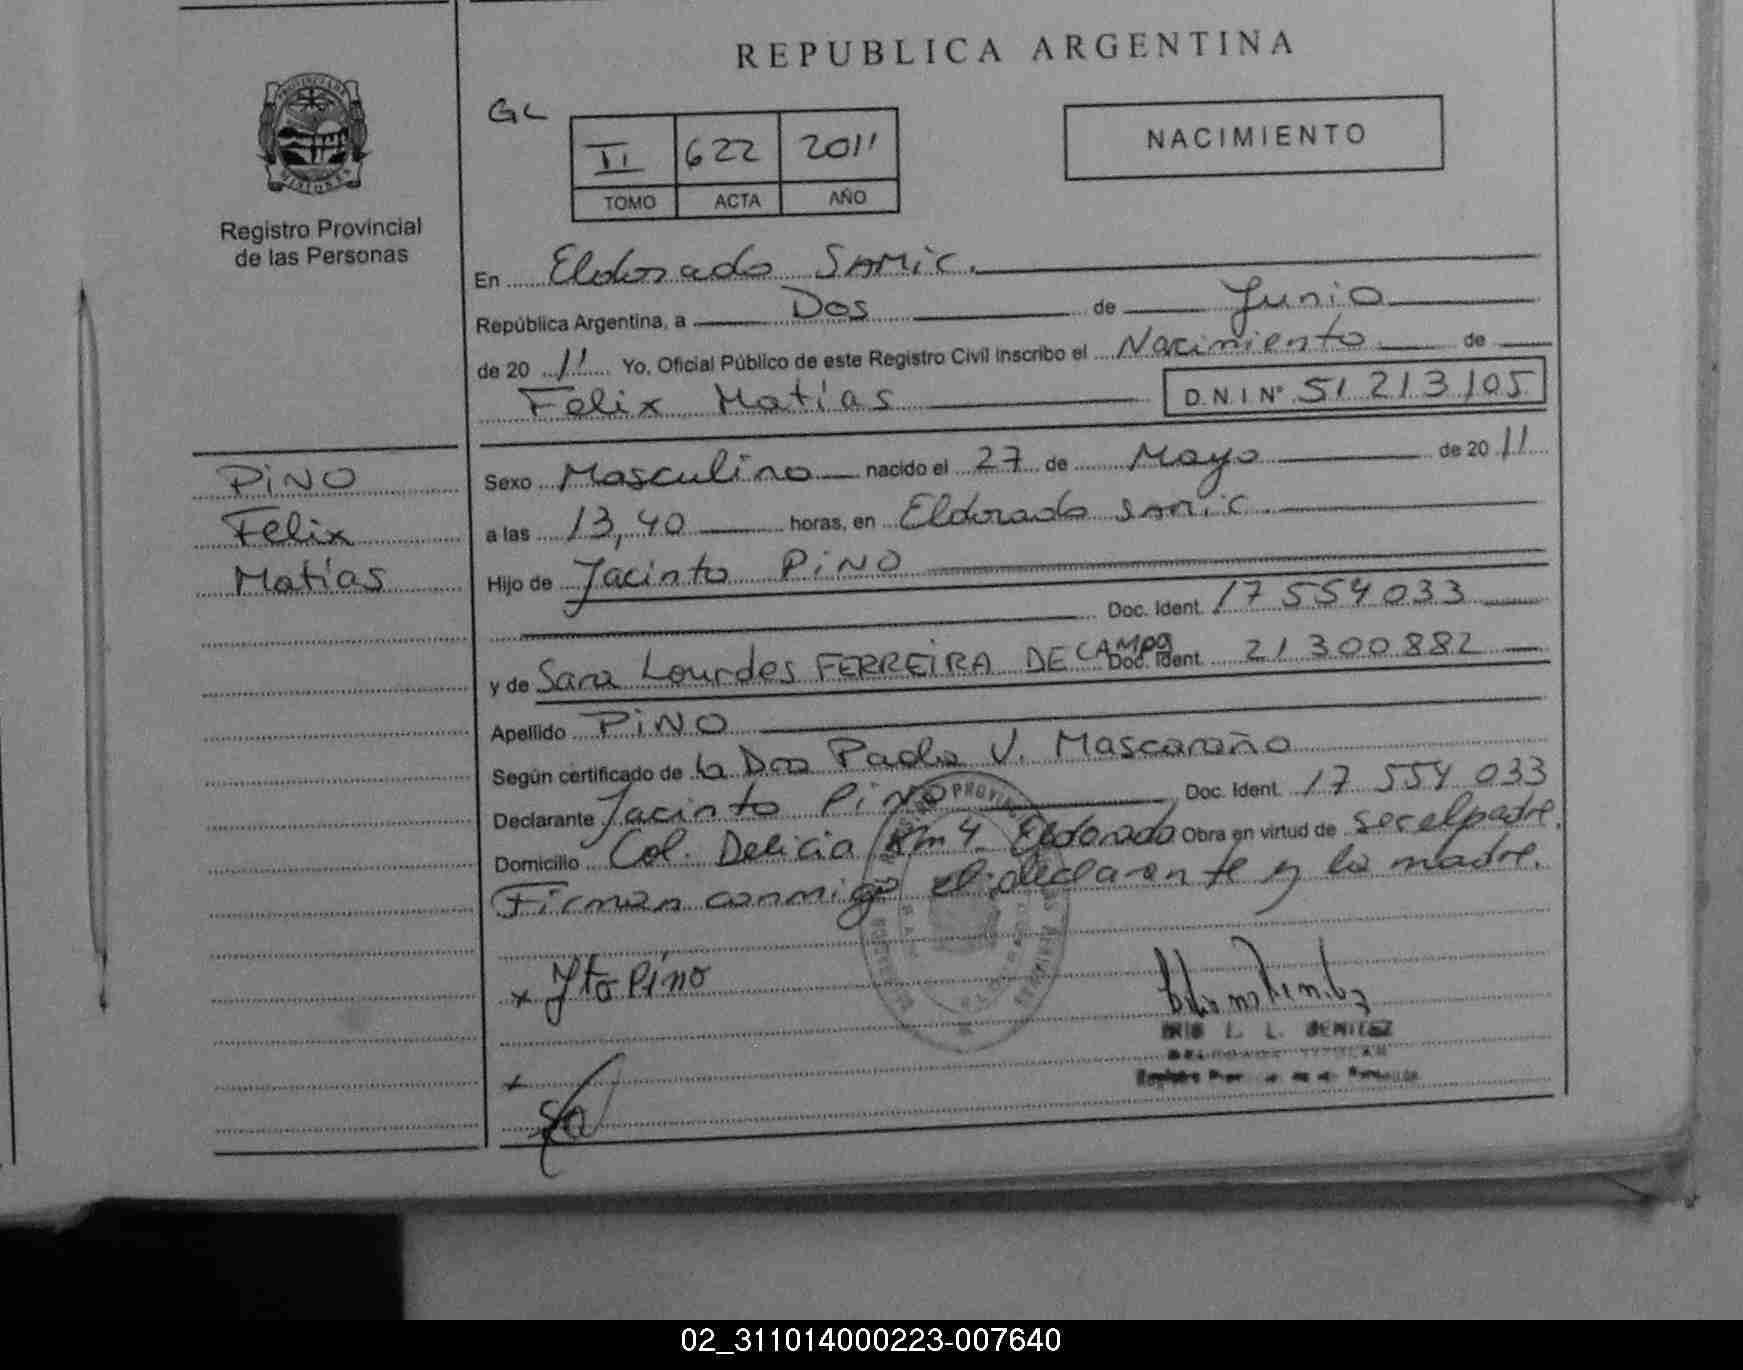 REPUBLICA ARGENTINA
PROVINCIA DE
MISIONES
Registro Provincial
de las Personas
GL
II 622 2011
TOMO ACTA AÑO
NACIMIENTO
En Eldorado SAMIC.
República Argentina, a Dos de Junio
de 20 11 Yo, Oficial Público de este Registro Civil inscribo el Nacimiento de
Felix Matías D.N.I Nº 51 213 105
PiNO
Felix
Matías
Sexo Masculino nacido el 27 de Mayo de 20 11
a las 13,40 horas, en Eldorado SAMIC.
Hijo de Jacinto PiNO
Doc. Ident. 17 554 033
y de Sara Lourdes FERREIRA DECAMPO Doc. Ident. 21 300 882
Apellido PiNO
Según certificado de la Dra Paola V. Mascaraño
Declarante Jacinto Pino Doc. Ident. 17 554 033
Domicilio Col. Delicia Km 4 Eldorado Obra en virtud de ser el padre.
Firman conmigo el declarante y la madre.
x Jto Pino
L. L. BENITEZ